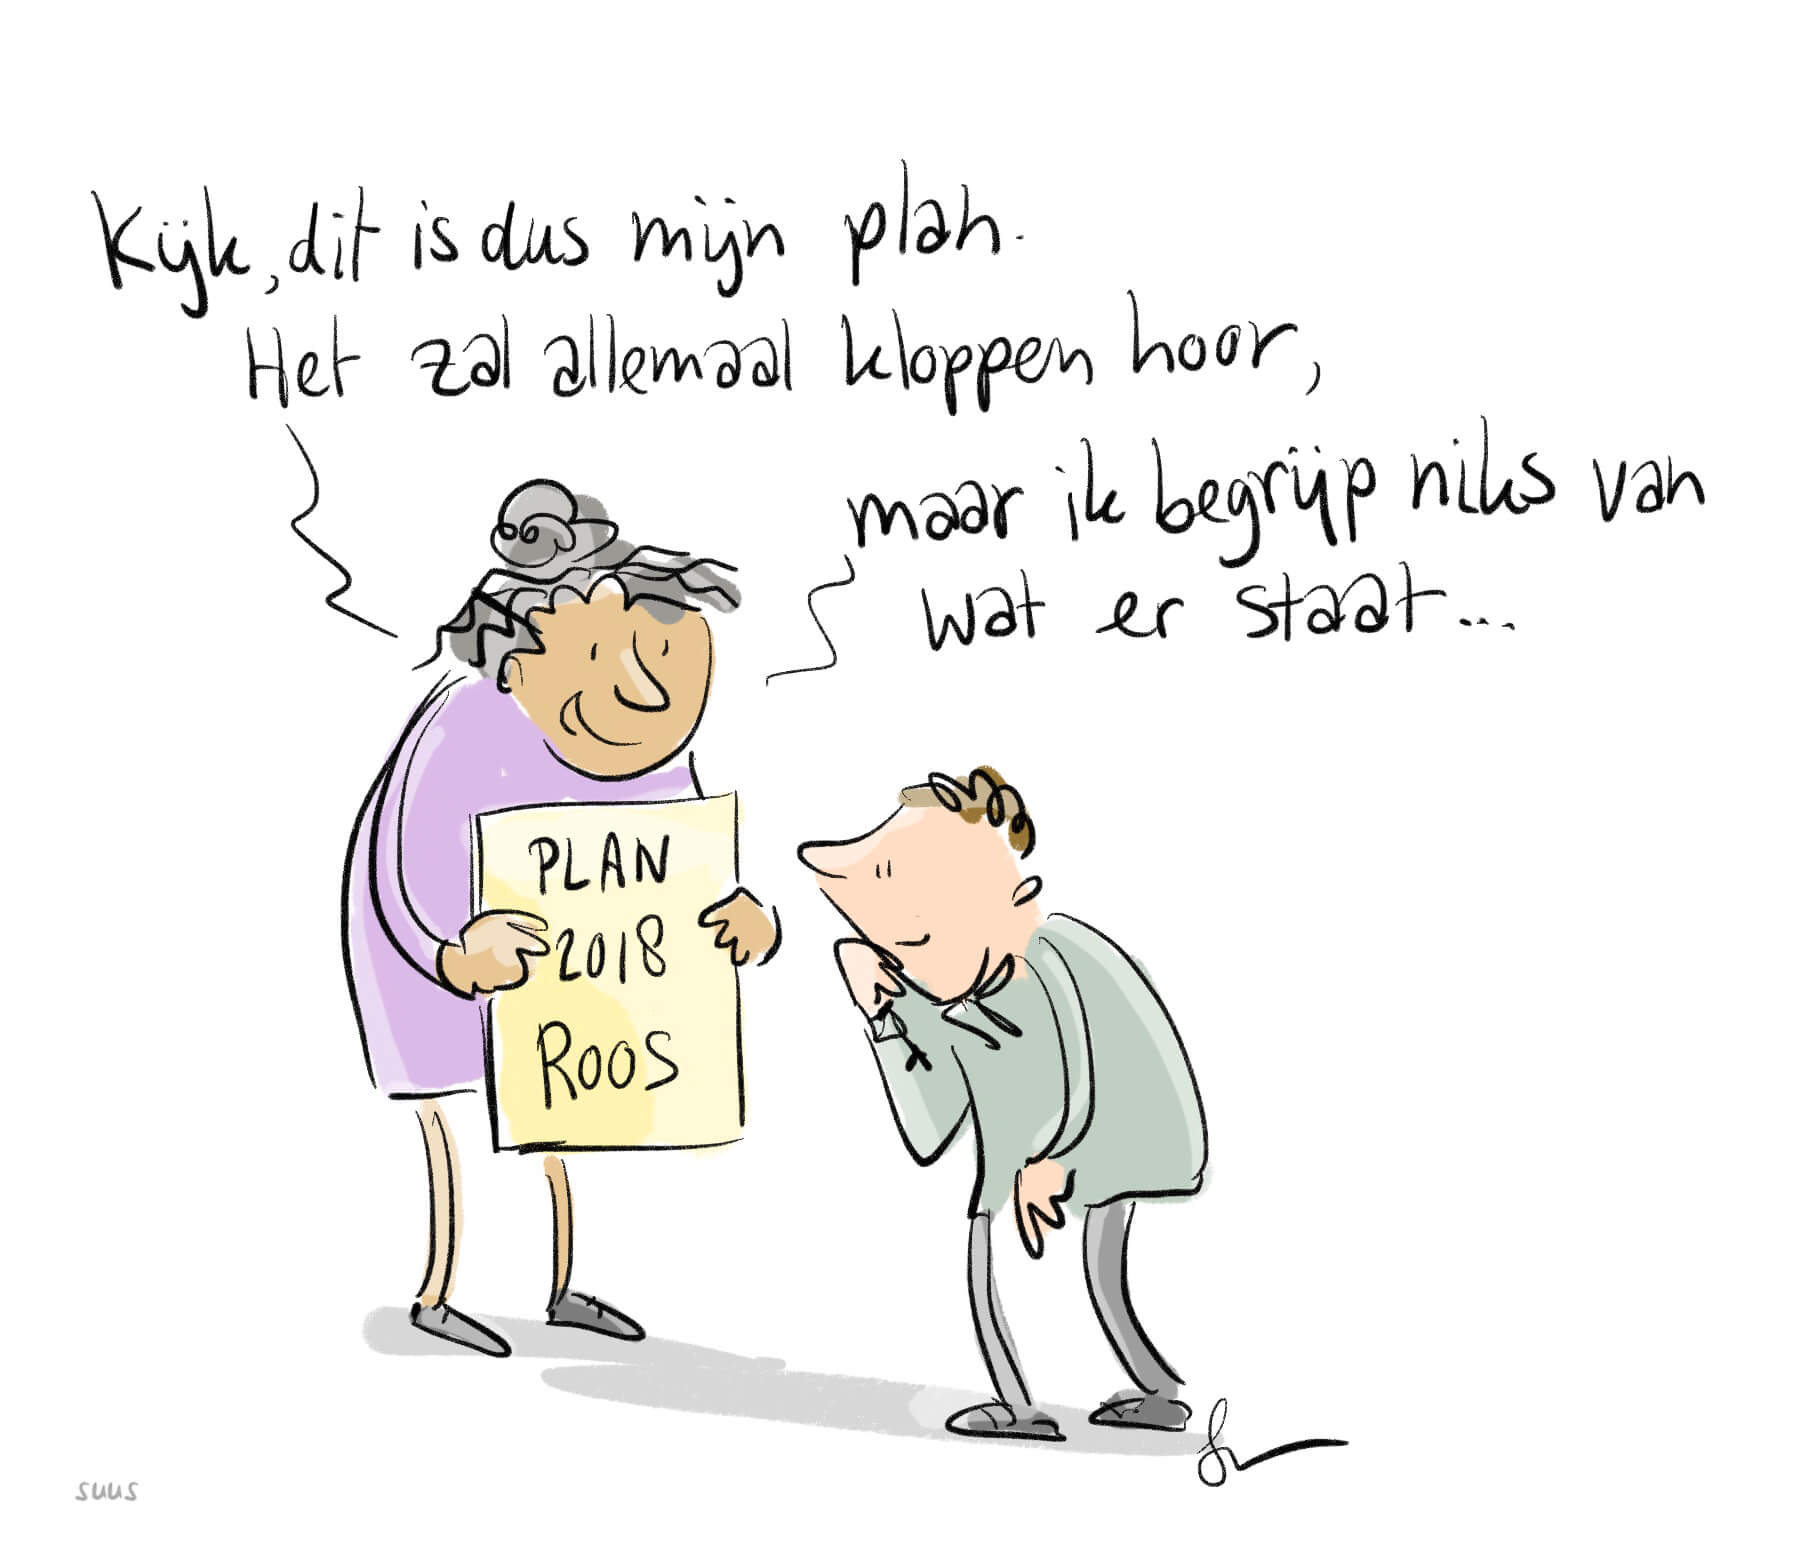 Kijk, dit is dus mijn plan.
Het zal allemaal kloppen hoor,
maar ik begrijp niks van
wat er staat...
PLAN
2018
ROOS
suus